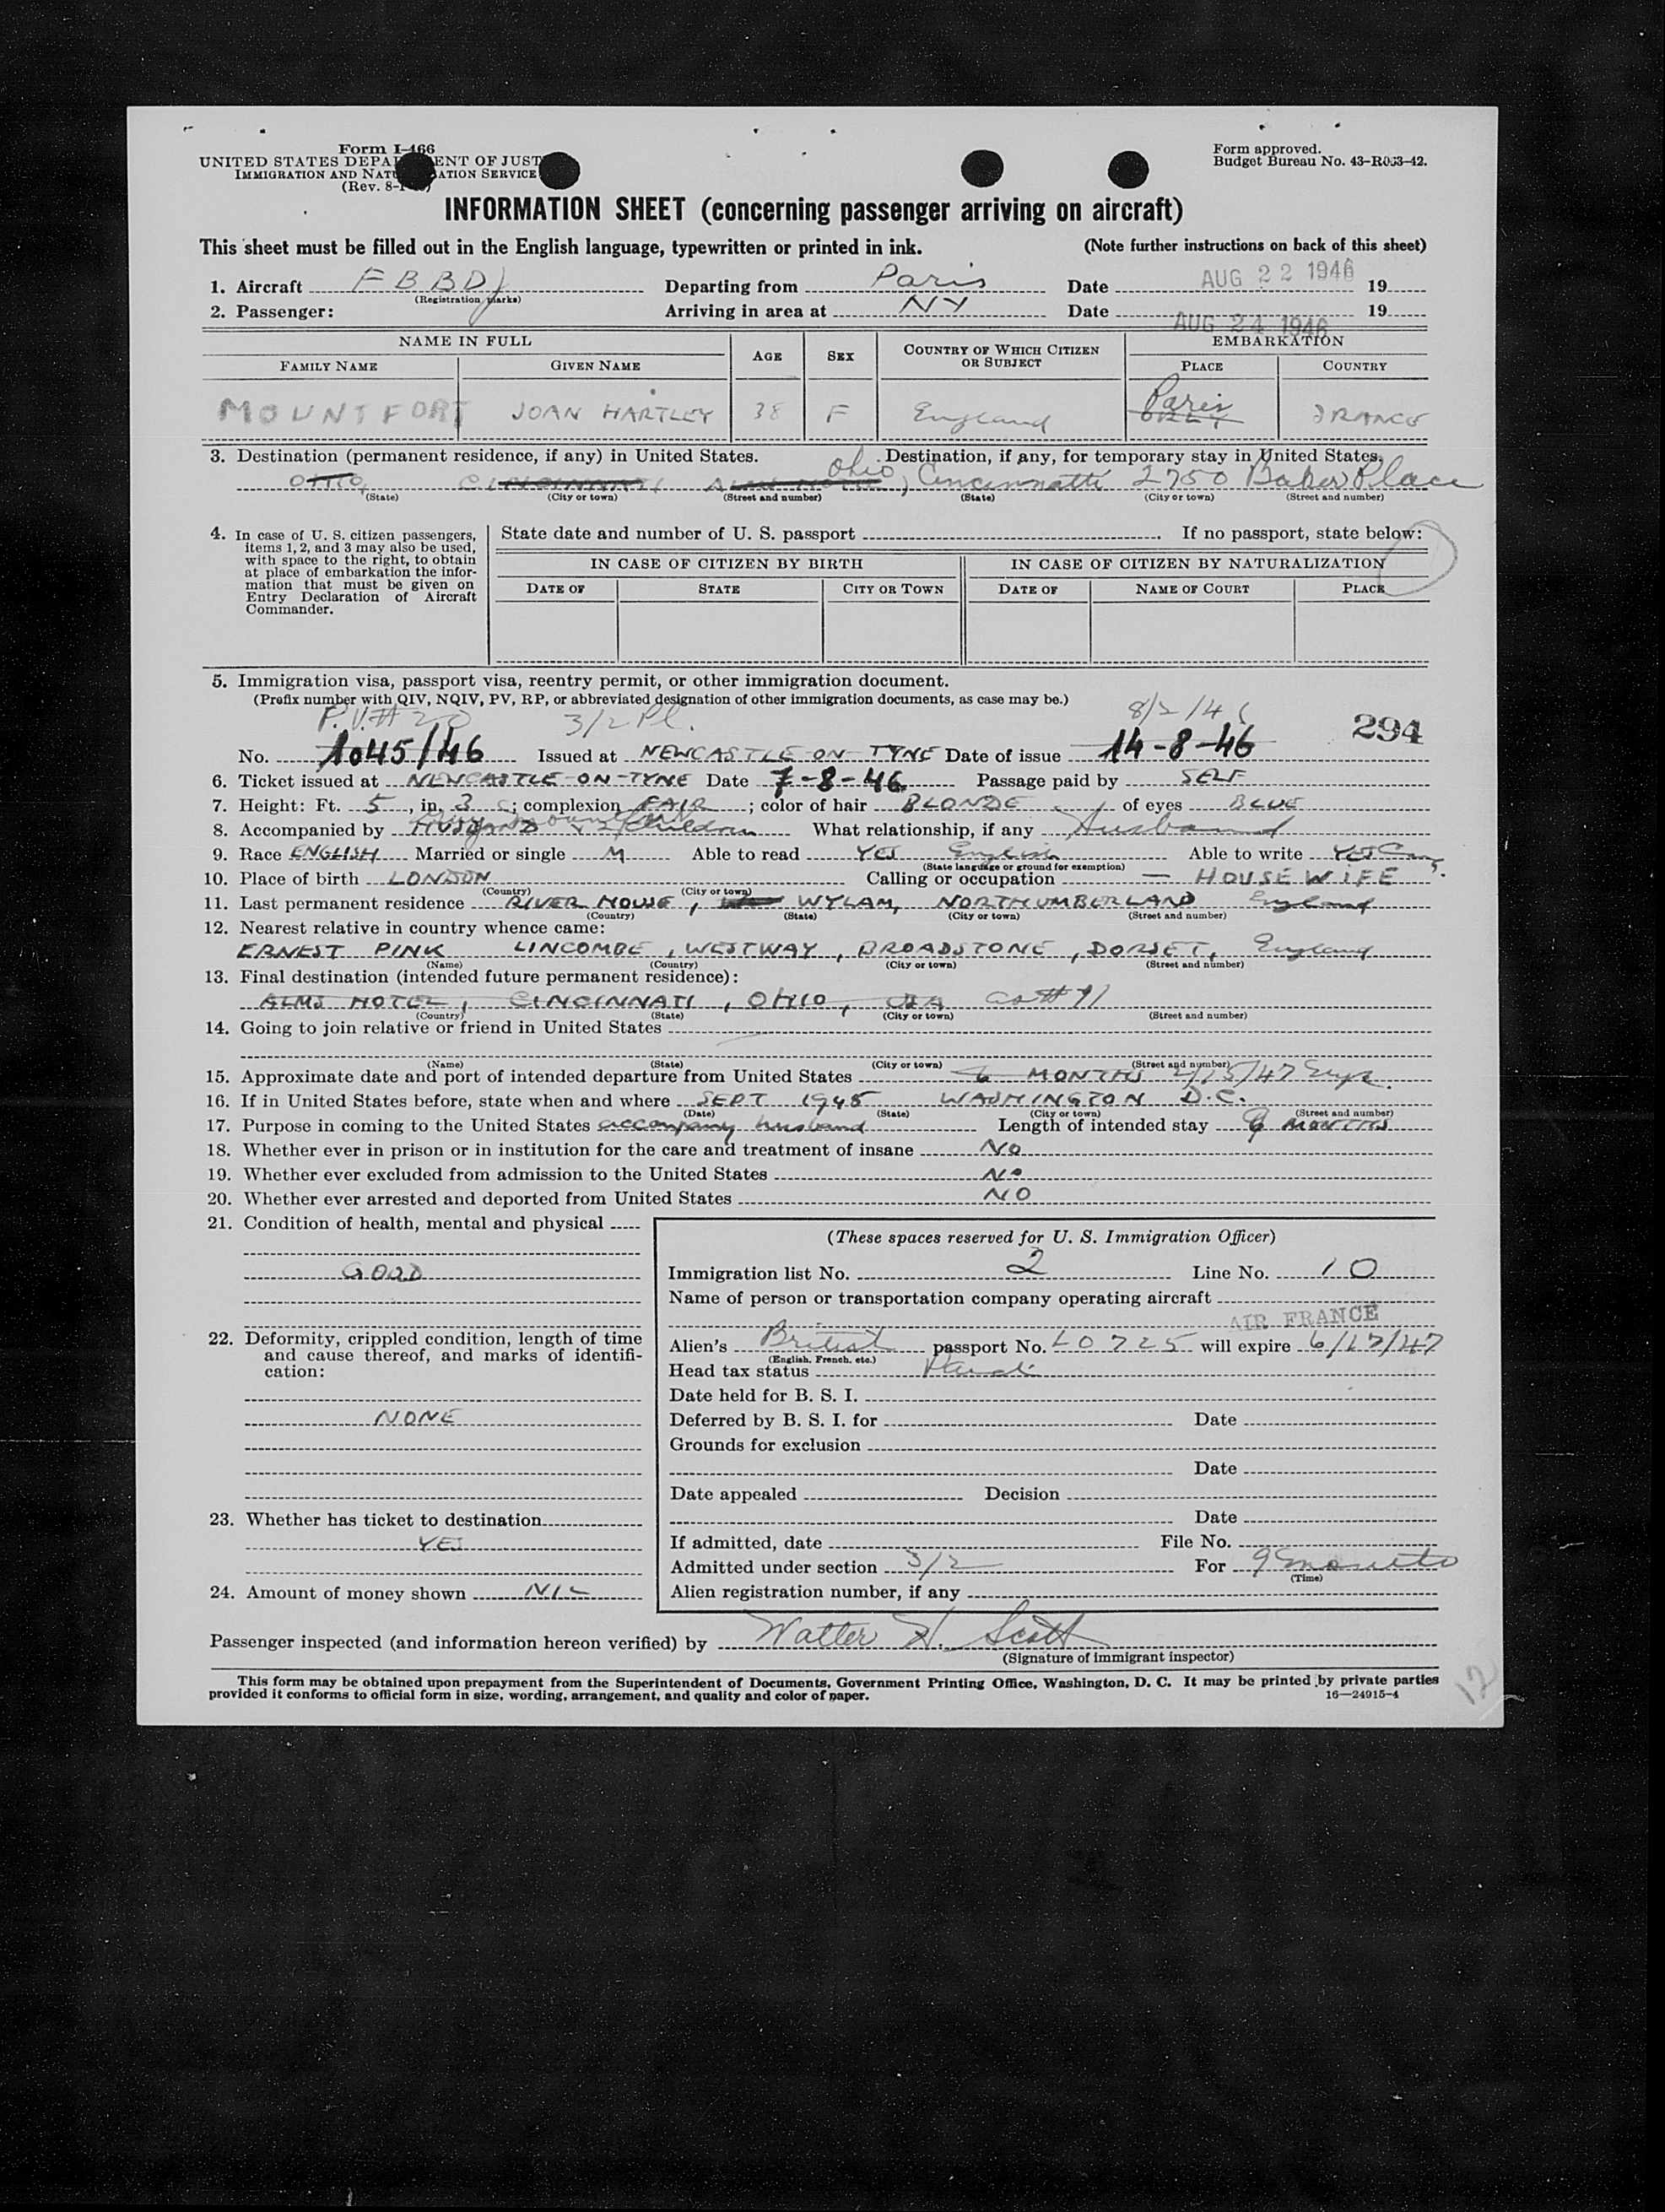 Form I-466
UNITED STATES DEPA ENT OF JUST
IMMIGRATION AND NATU ATION SERVICE
(Rev. 8-1
Form approved.
Budget Bureau No. 43-R053-42.
INFORMATION SHEET (concerning passenger arriving on aircraft)
This sheet must be filled out in the English language, typewritten or printed in ink. (Note further instructions on back of this sheet)
1. Aircraft F B B D J Departing from Paris Date AUG 22 1946 19
(Registration marks)
2. Passenger: Arriving in area at NY Date AUG 24 1946 19
NAME IN FULL AGE SEX COUNTRY OF WHICH CITIZEN OR SUBJECT EMBARKATION
FAMILY NAME GIVEN NAME PLACE COUNTRY
MOUNTFORT JOAN HARTLEY 38 F England Paris ORLY FRANCE
3. Destination (permanent residence, if any) in United States. Destination, if any, for temporary stay in United States.
OHIO, CINCINNATI ALMS HOTEL, Ohio Cincinnatti 2750 Baker Place
(State) (City or town) (Street and number) (State) (City or town) (Street and number)
4. In case of U. S. citizen passengers, items 1, 2, and 3 may also be used, with space to the right, to obtain at place of embarkation the information that must be given on Entry Declaration of Aircraft Commander.
State date and number of U. S. passport . If no passport, state below:
IN CASE OF CITIZEN BY BIRTH IN CASE OF CITIZEN BY NATURALIZATION
DATE OF STATE CITY OR TOWN DATE OF NAME OF COURT PLACE
5. Immigration visa, passport visa, reentry permit, or other immigration document.
(Prefix number with QIV, NQIV, PV, RP, or abbreviated designation of other immigration documents, as case may be.)
P.V.# 20 3/2 Pl. 294
No. 1045/46 Issued at NEWCASTLE-ON TYNE Date of issue 14-8-46
6. Ticket issued at NEWCASTLE-ON-TYNE Date 7-8-46 Passage paid by SELF
7. Height: Ft. 5, in. 3; complexion FAIR; color of hair BLONDE of eyes BLUE
8. Accompanied by HUSBAND + 2 children What relationship, if any Husband
9. Race ENGLISH Married or single M Able to read YES English Able to write YES
(State language or ground for exemption)
10. Place of birth LONDON Calling or occupation — HOUSEWIFE
(Country) (City or town)
11. Last permanent residence RIVER HOUSE, WYLAM, NORTHUMBERLAND England
(Country) (State) (City or town) (Street and number)
12. Nearest relative in country whence came:
ERNEST PINK LINCOMBE, WESTWAY, BROADSTONE, DORSET, England
(Name) (Country) (City or town) (Street and number)
13. Final destination (intended future permanent residence):
ALMS HOTEL, CINCINNATI, OHIO, USA as # 11
(Country) (State) (City or town) (Street and number)
14. Going to join relative or friend in United States
(Name) (State) (City or town) (Street and number)
15. Approximate date and port of intended departure from United States 6 MONTHS
16. If in United States before, state when and where SEPT 1945 WASHINGTON D.C.
(Date) (State) (City or town) (Street and number)
17. Purpose in coming to the United States accompany husband Length of intended stay MONTHS
18. Whether ever in prison or in institution for the care and treatment of insane NO
19. Whether ever excluded from admission to the United States NO
20. Whether ever arrested and deported from United States NO
21. Condition of health, mental and physical
GOOD
22. Deformity, crippled condition, length of time and cause thereof, and marks of identification:
NONE
23. Whether has ticket to destination
YES
24. Amount of money shown NIL
(These spaces reserved for U. S. Immigration Officer)
Immigration list No. 2 Line No. 10
Name of person or transportation company operating aircraft
AIR FRANCE
Alien's British passport No. L0725 will expire 6/17/47
(English, French, etc.)
Head tax status
Date held for B. S. I.
Deferred by B. S. I. for Date
Grounds for exclusion
Date
Date appealed Decision
Date
If admitted, date File No.
Admitted under section 3/2 For
(Time)
Alien registration number, if any
Passenger inspected (and information hereon verified) by Walter H. Scott
(Signature of immigrant inspector)
This form may be obtained upon prepayment from the Superintendent of Documents, Government Printing Office, Washington, D. C. It may be printed by private parties
provided it conforms to official form in size, wording, arrangement, and quality and color of paper. 16—24915-4
12